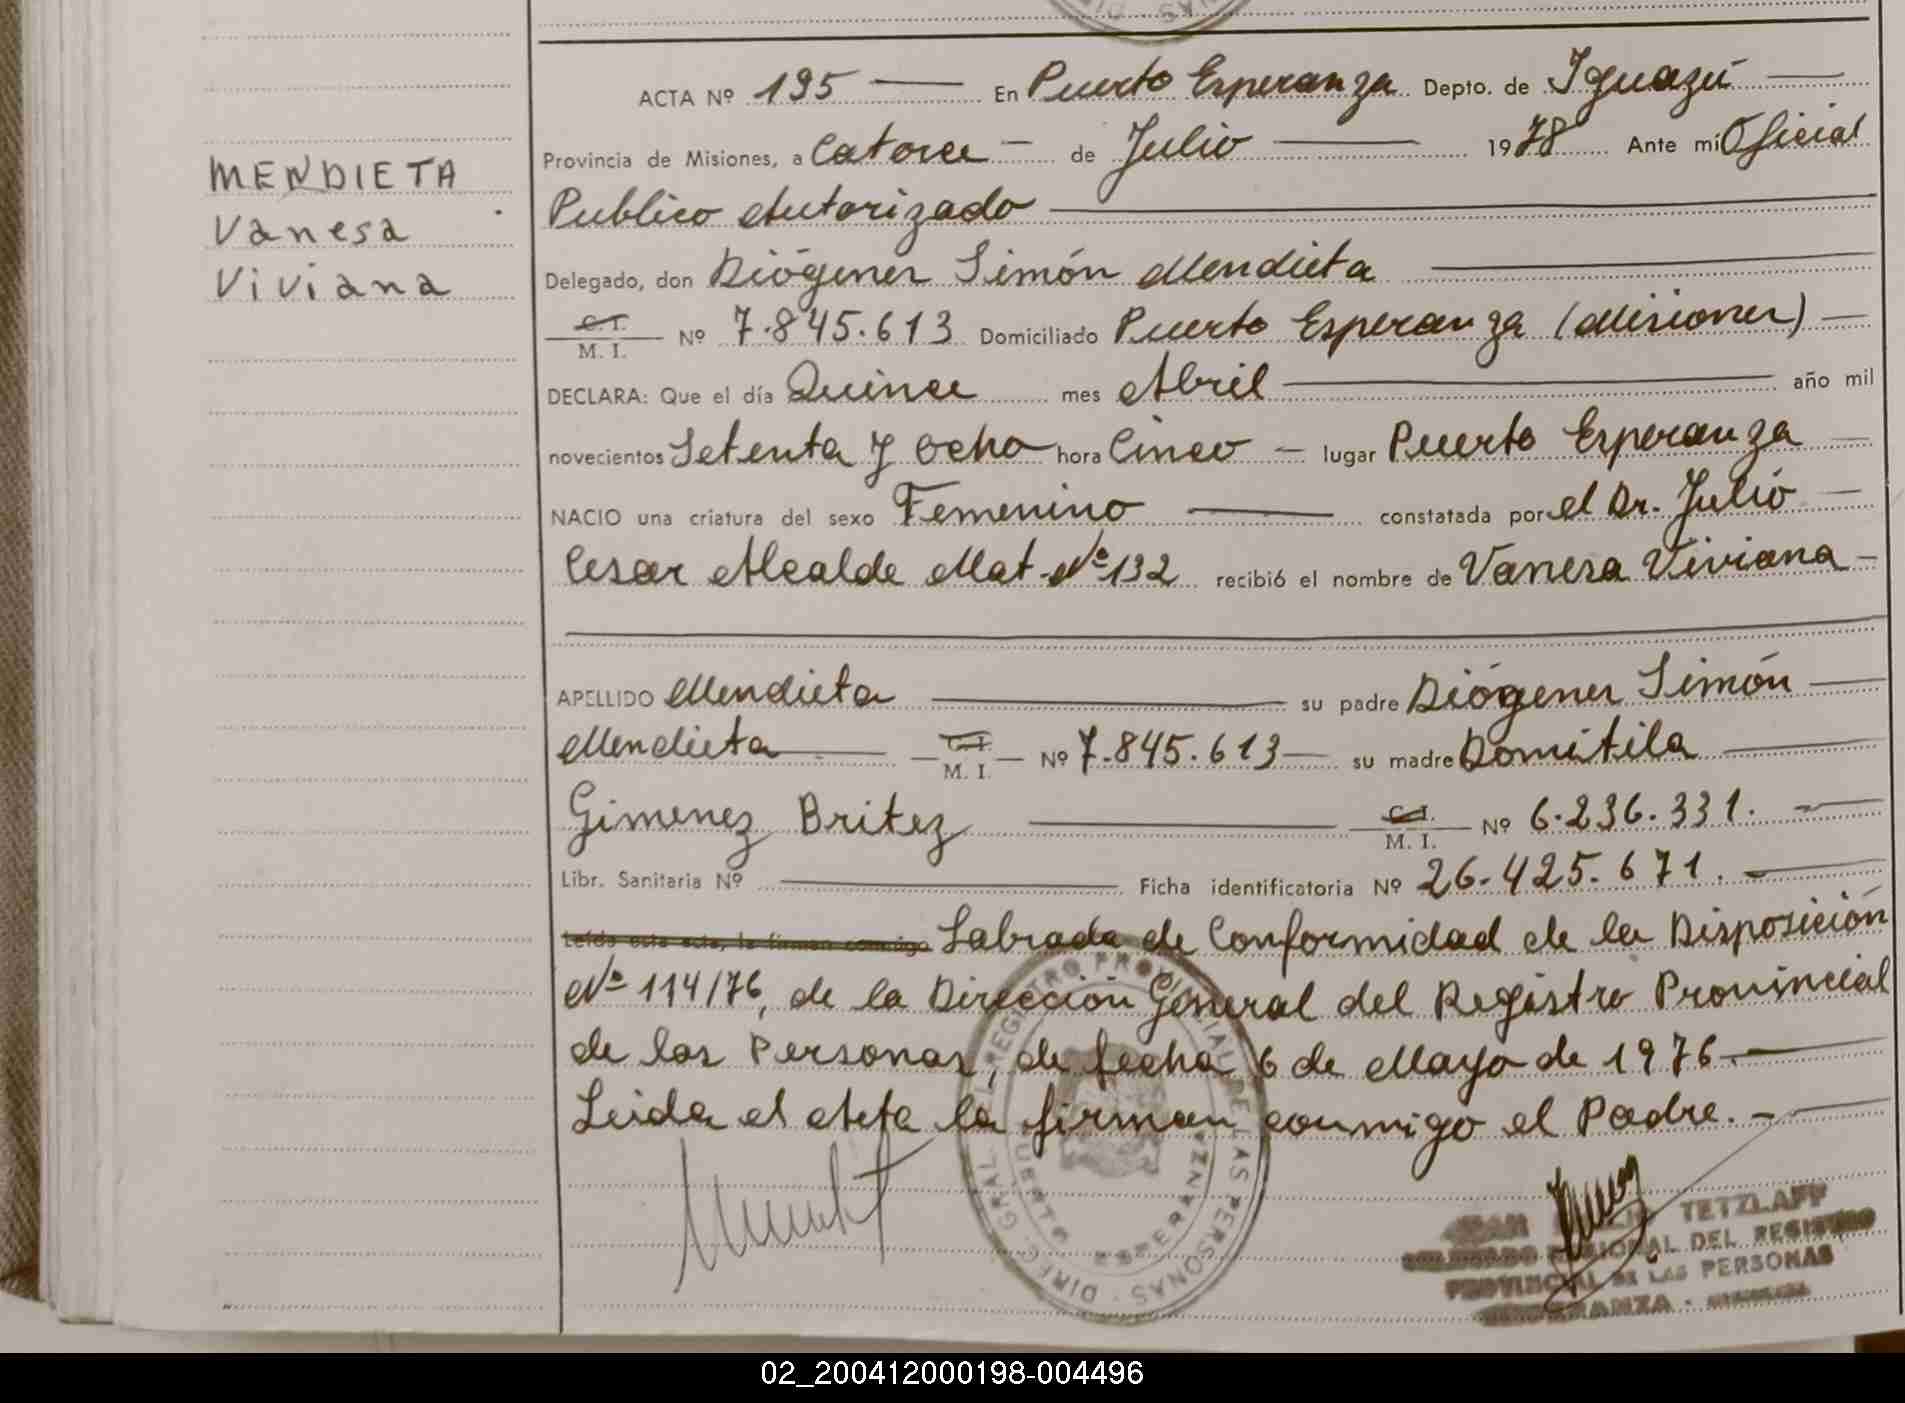 ACTA Nº 195 En Puerto Esperanza Depto. de Iguazú
Provincia de Misiones, a Catorce de Julio 1978 Ante mi Oficial
MENDIETA
Publico Autorizado
Vanesa
Delegado, don Diógenes Simón Mendieta
Viviana
C.I. M. I. Nº 7.845.613 Domiciliado Puerto Esperanza (Misiones)
DECLARA: Que el día Quince mes Abril año mil
novecientos Setenta y Ocho hora Cinco lugar Puerto Esperanza
NACIO una criatura del sexo Femenino constatada por el Dr. Julio
Cesar Alcalde Mat. Nº 132 recibió el nombre de Vanesa Viviana
APELLIDO Mendieta su padre Diógenes Simón
Mendieta C.I. M. I. Nº 7.845.613 su madre Domitila
Gimenez Britez C.I. M. I. Nº 6.236.331.
Libr. Sanitaria Nº Ficha identificatoria Nº 26.425.671.
Leída esta acta, la firman conmigo Labrada de Conformidad de la Disposición
Nº 114/76, de la Dirección General del Registro Provincial
de las Personas, de fecha 6 de Mayo de 1976.
Leida el Acta la firman conmigo el Padre.
DIREC. GRAL. REGISTRO PROVINCIAL DE LAS PERSONAS
PUERTO ESPERANZA
TETZLAFF
DEL REGISTRO
PROVINCIAL DE LAS PERSONAS
02_200412000198-004496